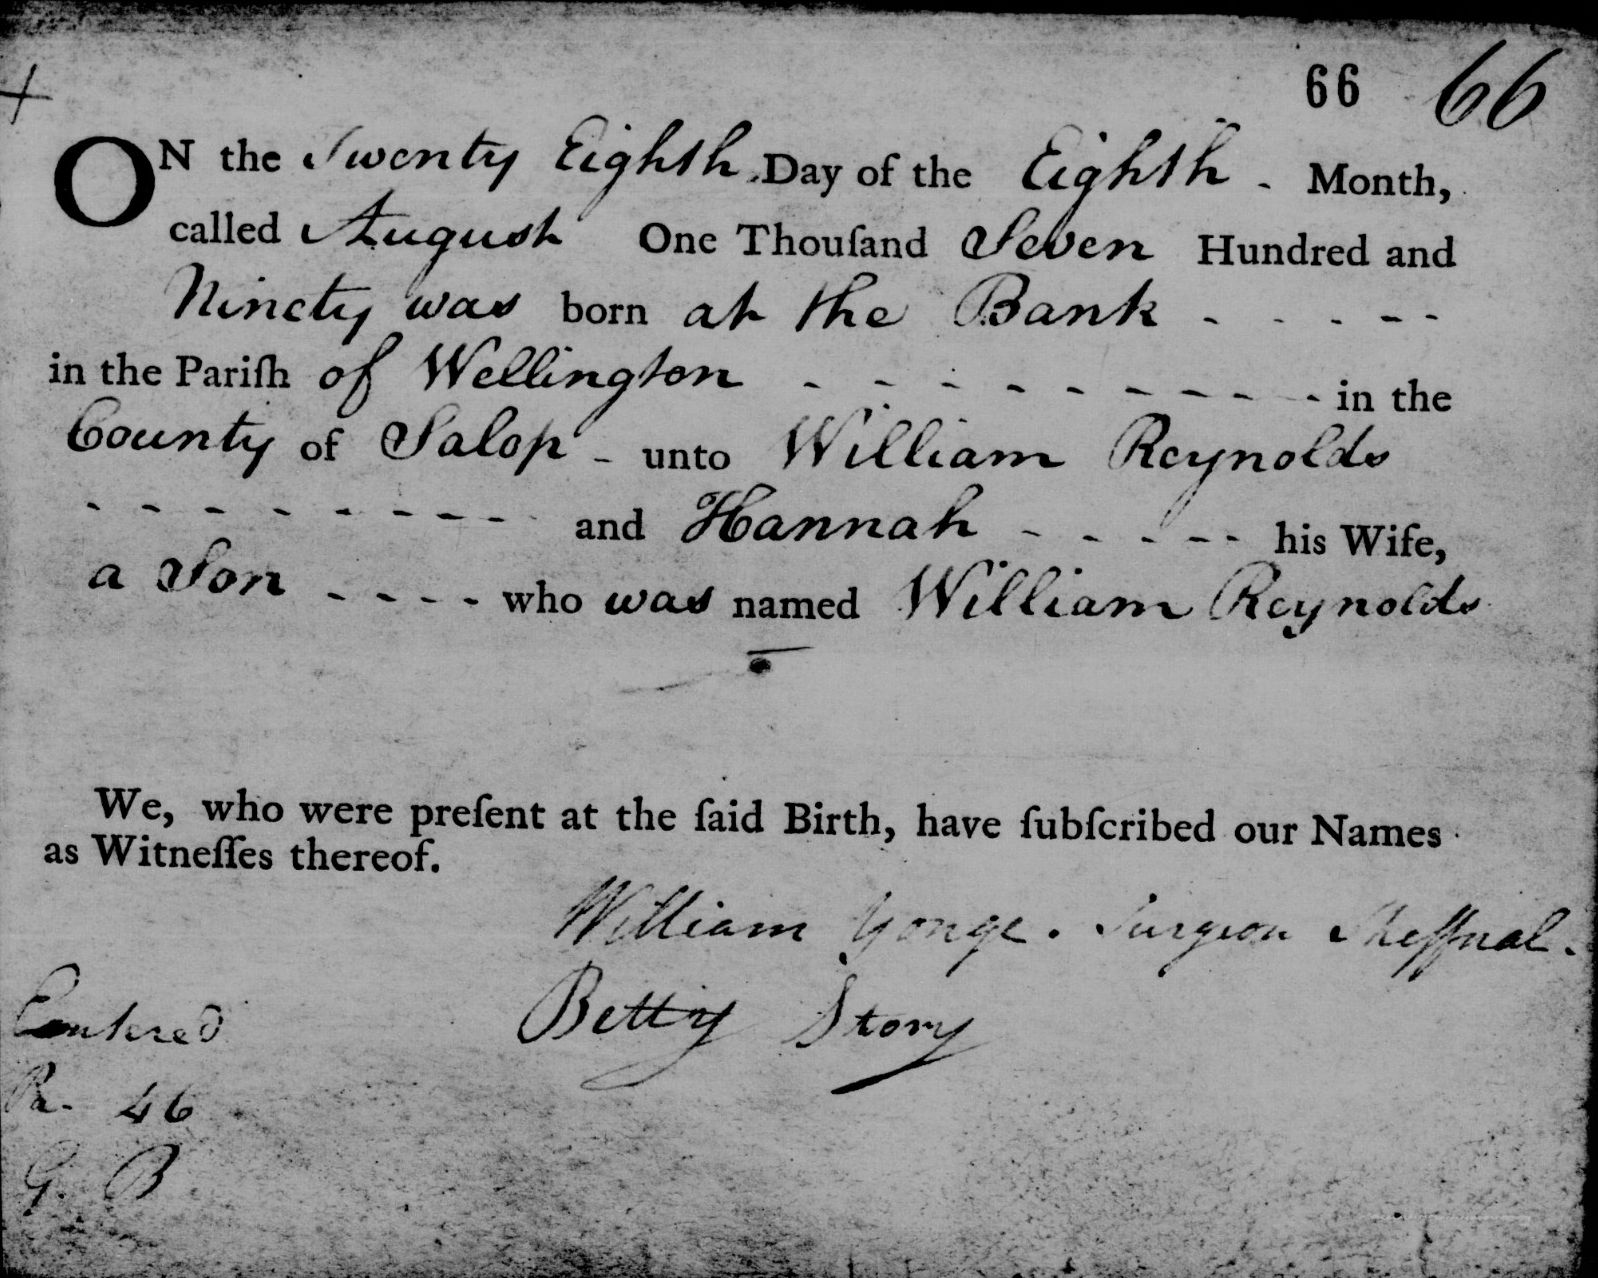 66 66
ON the Twenty Eighth Day of the Eighth - Month,
called August One Thouſand Seven Hundred and
Ninety was born at the Bank - - - - -
in the Pariſh of Wellington - - - - - - - - - in the
County of Salop - unto William Reynolds
- - - - - - - - and Hannah - - - - - his Wife,
a Son - - - - who was named William Reynolds
We, who were preſent at the ſaid Birth, have ſubſcribed our Names
as Witneſſes thereof.
William Yonge. Surgeon Sheffnal.
Betty Story
Entered
R. 46
G. B